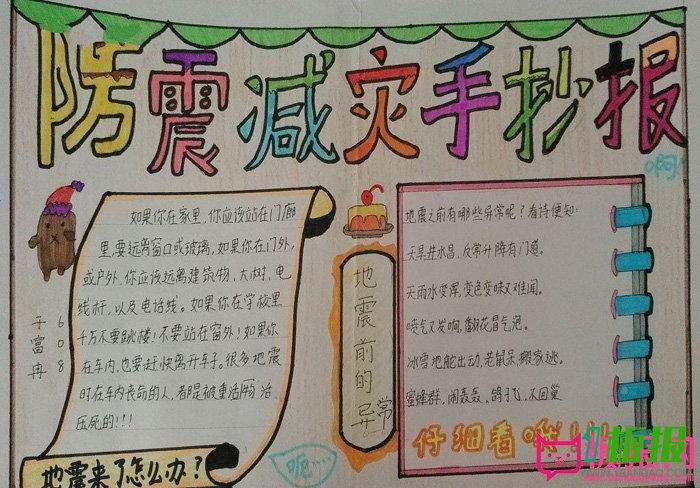 防震减灾手抄报
啊
如果你在家里,你应该站在门廊
里,要远离窗口或玻璃,如果你在门外,
或户外,你应该远离建筑物,大树,电
线杆,以及电话线。如果你在学校里
千万不要跳楼!不要站在窗外!如果你
在车内,也要赶快离开车子。很多地震
时在车内丧命的人,都是被重活物 活
压死的!!!
地震来了怎么办?
于富冉
608
呃……
地震前的异常
地震之前有哪些异常呢?看诗便知:
天旱井水冒,反常升降有门道。
天雨水变浑,变色变味又难闻。
喷气又发响,翻花冒气泡。
冰雪地蛇出动,老鼠呆,搬家逃。
蜜蜂群,闹轰轰,鸽子飞,不回巢
仔细看哟!!!
板报